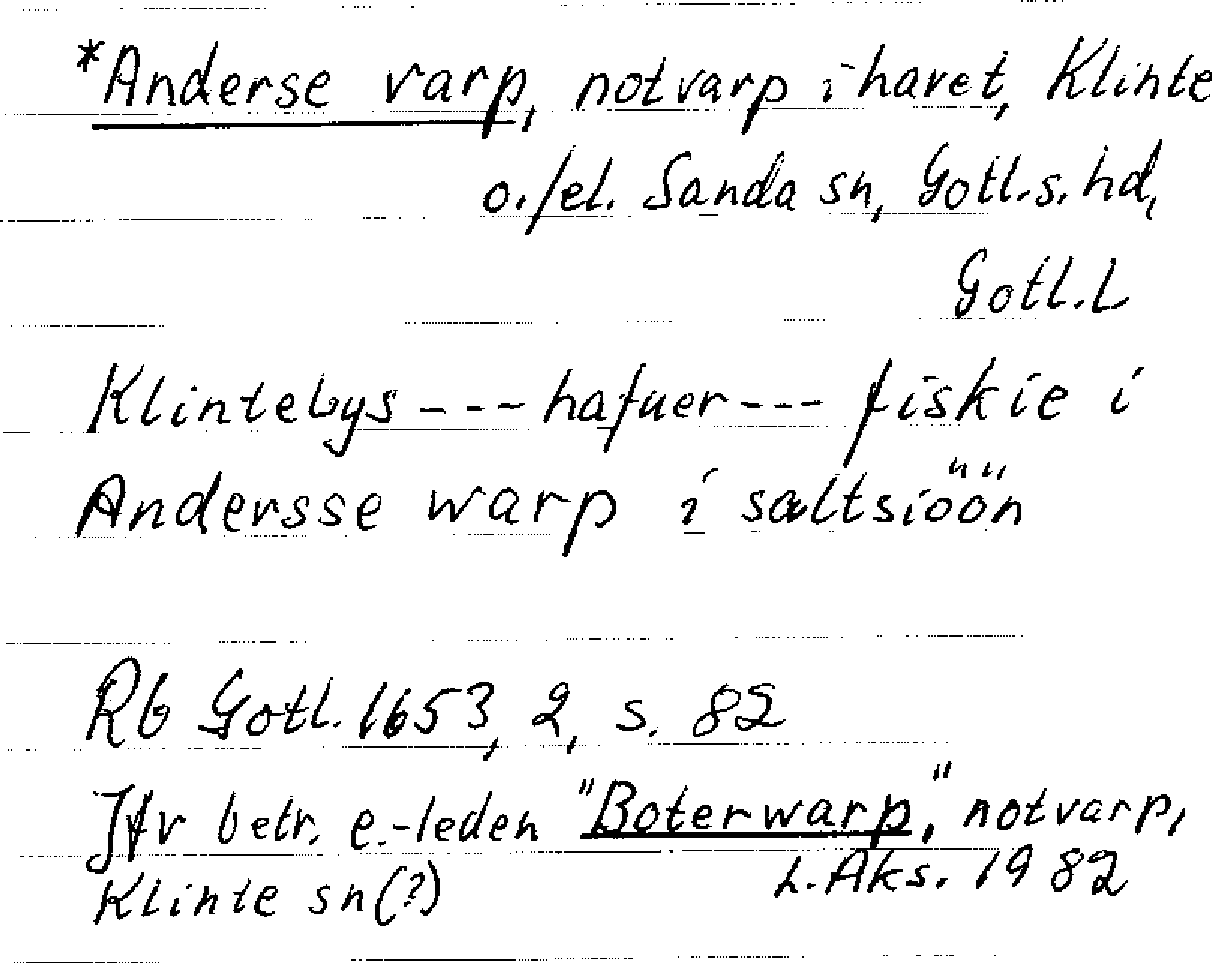 *Anderse varp, notvarp i havet, Klinte
o./el. Sanda sn, Gotl.s. hd,
Gotl.L
Klintebys --- hafuer --- fiskie i
Andersse warp i saltsiöön
Rb Gotl. 1653, 2, s. 82
Jfr betr. e.-leden "Boterwarp", notvarp,
Klinte sn(?) L.Aks. 1982